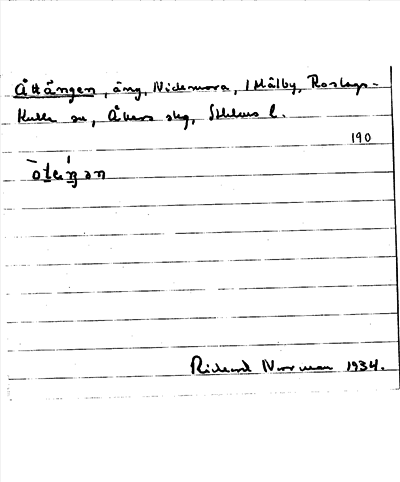 Åttängen, äng, Nidemora, 1 Målby, Roslags-
Kulla sn, Åkers skg, Sthlms l.
190
òtɛ́ŋən
Rickard Norrman 1934.